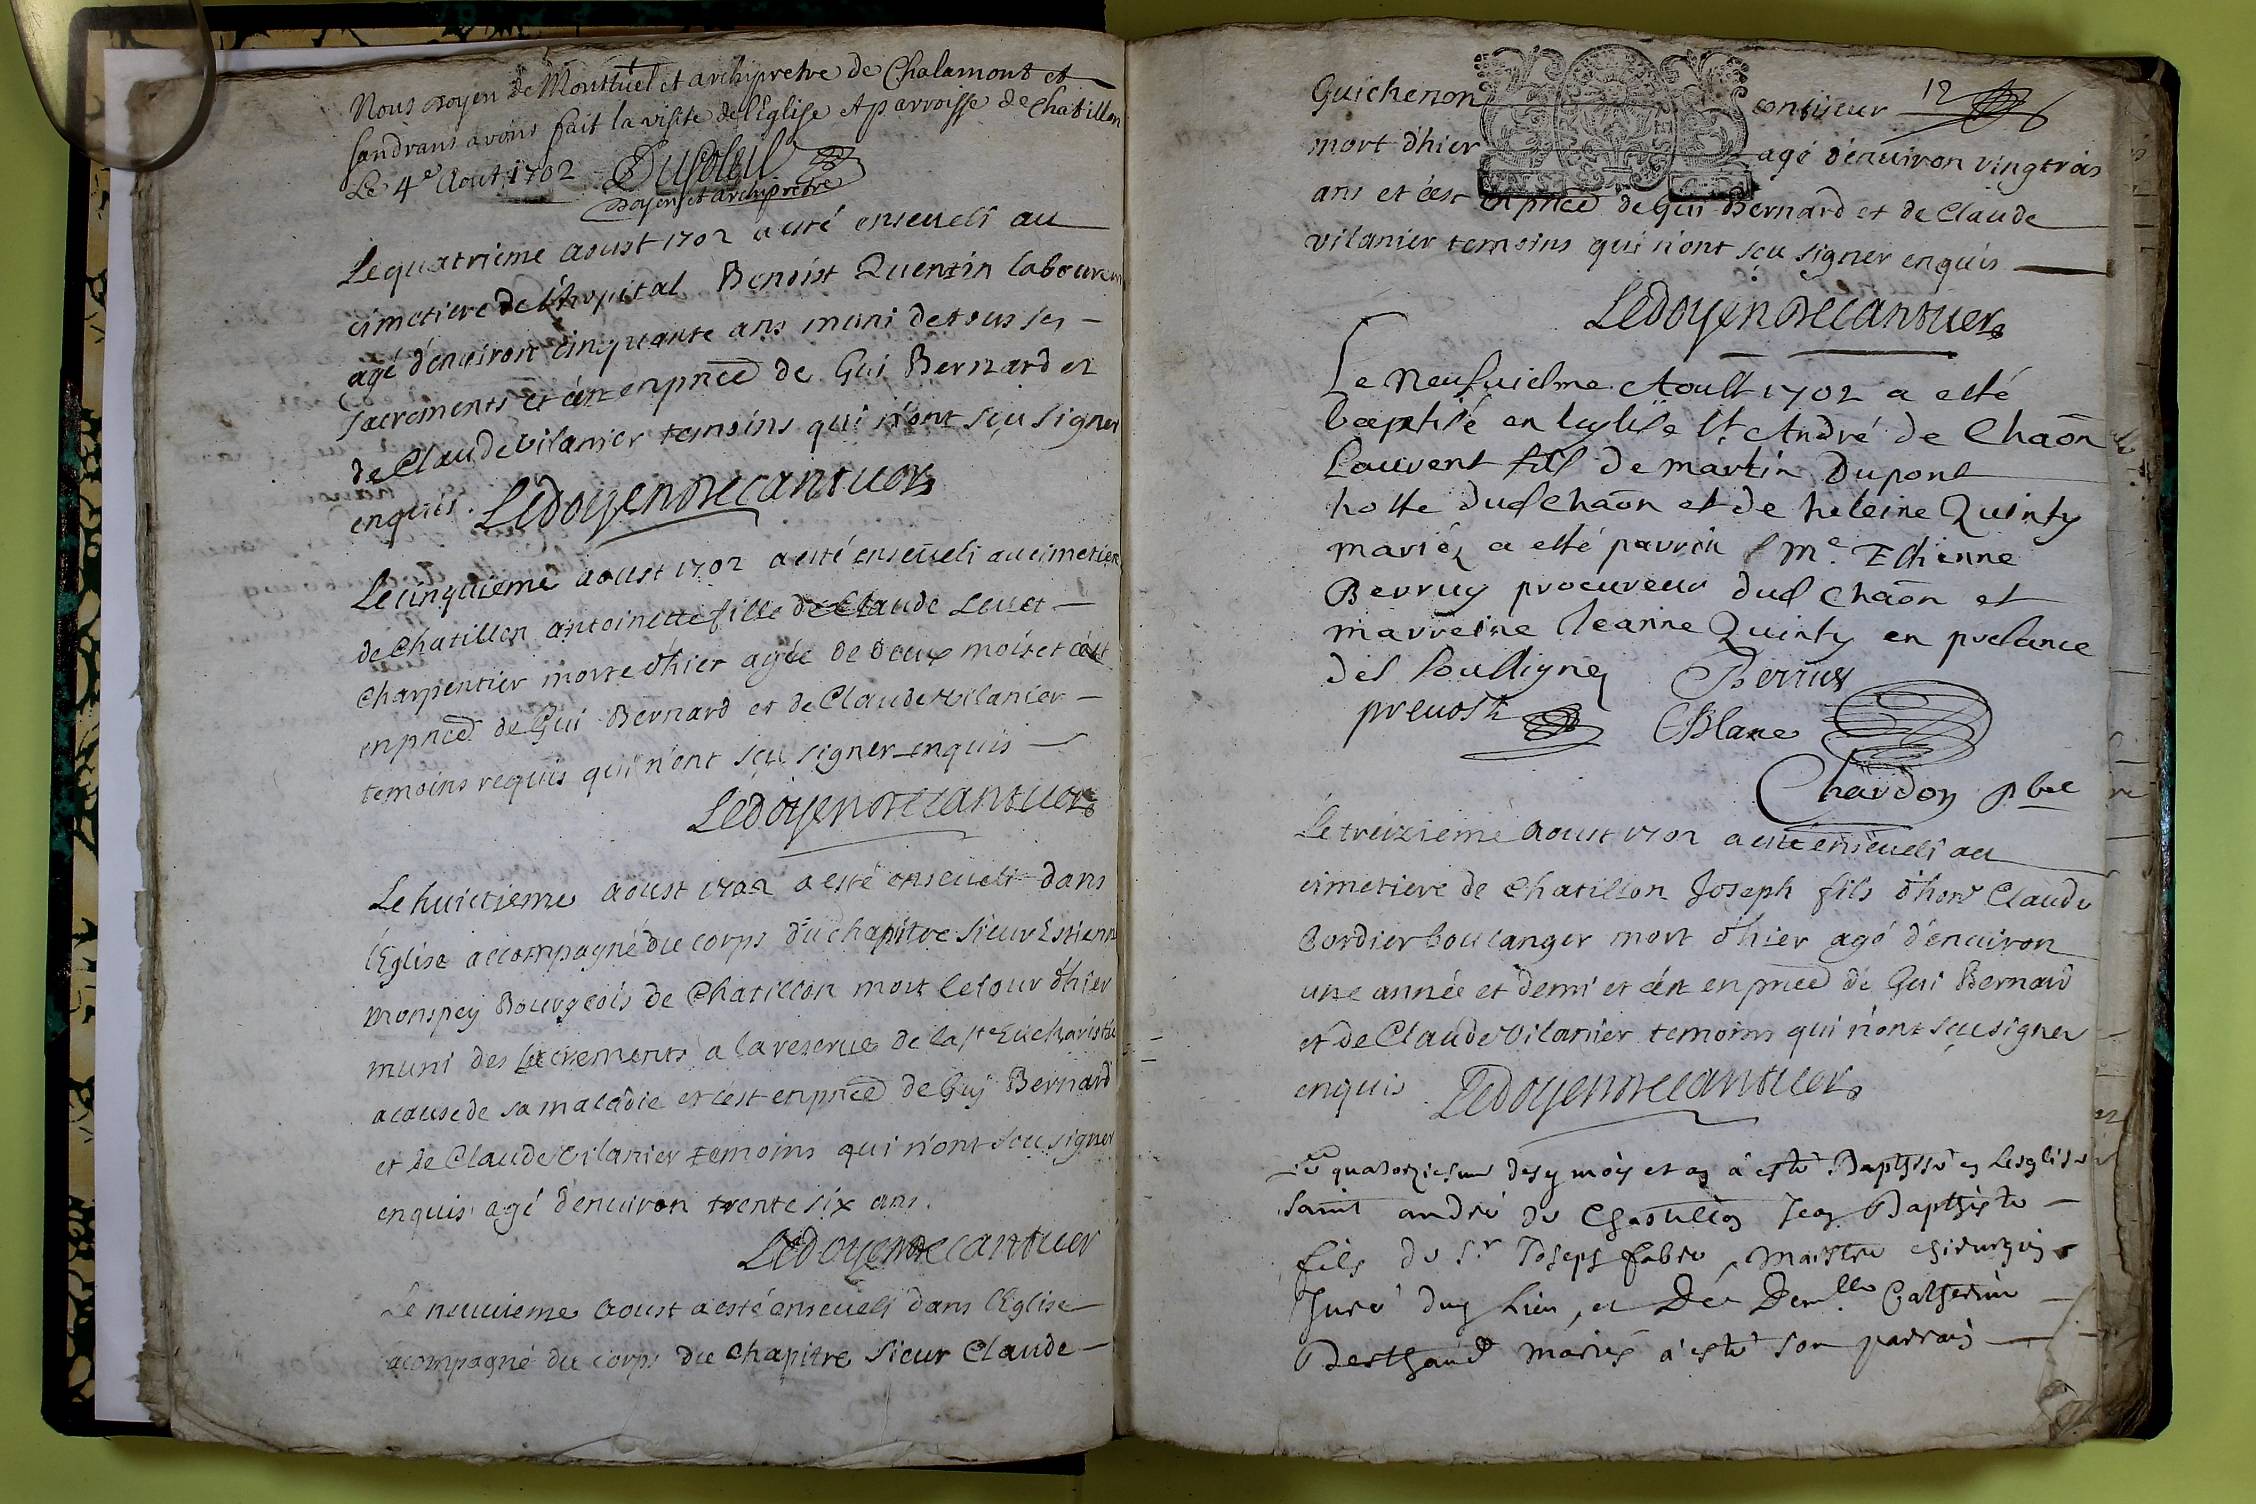 Nous doyen de Montluel et archipretre de Chalamont et
sandrans avons fait la visite de l'Eglise et parroisse de Chatillon
Le 4e Aout 1702 Dusoleil
doyen et archipretre
Le quatrieme aoust 1702 a esté enseueli au
cimetiere de l'hopital Benoist Quentin laboureur
agé d'enuiron cinquante ans muni de tous ses
sacrements et c'est en pñce de Gui Bernard et
de Claude Vilanier temoins qui n'ont sçu signer
enquis. Ledoyen de Cantuer
Le cinquieme aoust 1702 a esté enseueli au cimetiere
de Chatillon antoinette fille de Claude Leuet
charpentier morte d'hier agée de deux mois et c'est
en pñce de Gui Bernard et de Claude Vilanier
temoins requis qui n'ont sçu signer enquis
Ledoyen de Cantuer
Le huictieme aoust 1702 a esté enseueli dans
l'Eglise accompagné du corps du chapitre sieur Estienne
Monspey Bourgeois de Chatillon mort le iour d'hier
muni des sacrements a la reserue de la ste Eucharistie
a cause de sa maladie et c'est en pñce de Guy Bernard
et de Claude Vilanier temoins qui n'ont sçu signer
enquis agé d'enuiron trente six ans.
Ledoyen de Cantuer
Le neuuieme aoust a esté enseueli dans l'Eglise
acompagné du corps du chapitre sieur Claude
Guichenon confiseur 12
mort d'hier agé d'enuiron vingt trois
ans et c'est en pñce de Gui Bernard et de Claude
vilanier temoins qui n'ont sçu signer enquis
Ledoyen de Cantuer
Le Neufuiesme Aoust 1702 a esté
baptisé en l'eglise St André de Chaõn
Laurent fils de martin Dupont
hoste dud Chaõn et de heleine Quinty
mariés a esté parrin Me Estienne
Berruy procureur dud chaõn et
marreine Jeanne Quinty en presance
des soussignes Berruy
preuost Blanc
Chardon pbre
Le treizieme Aoust 1702 a esté enseueli au
cimetiere de Chatillon Joseph fils d'hon Claude
Bordier boulanger mort d'hier agé d'enuiron
une année et demi et c'est en pñce de Gui Bernard
et de Claude Vilanier temoins qui n'ont sçu signer
enquis Ledoyen de Cantuer
Le quatorziesme desd mois et an a esté Baptisé en Lesglise
saint andré de Chastillon Jean Baptiste
fils de Sr Joseph fabre, maistre chirurgien
Juré dud Lieu, et De Demlle Catherine
Desthaud mariés a esté son parrain